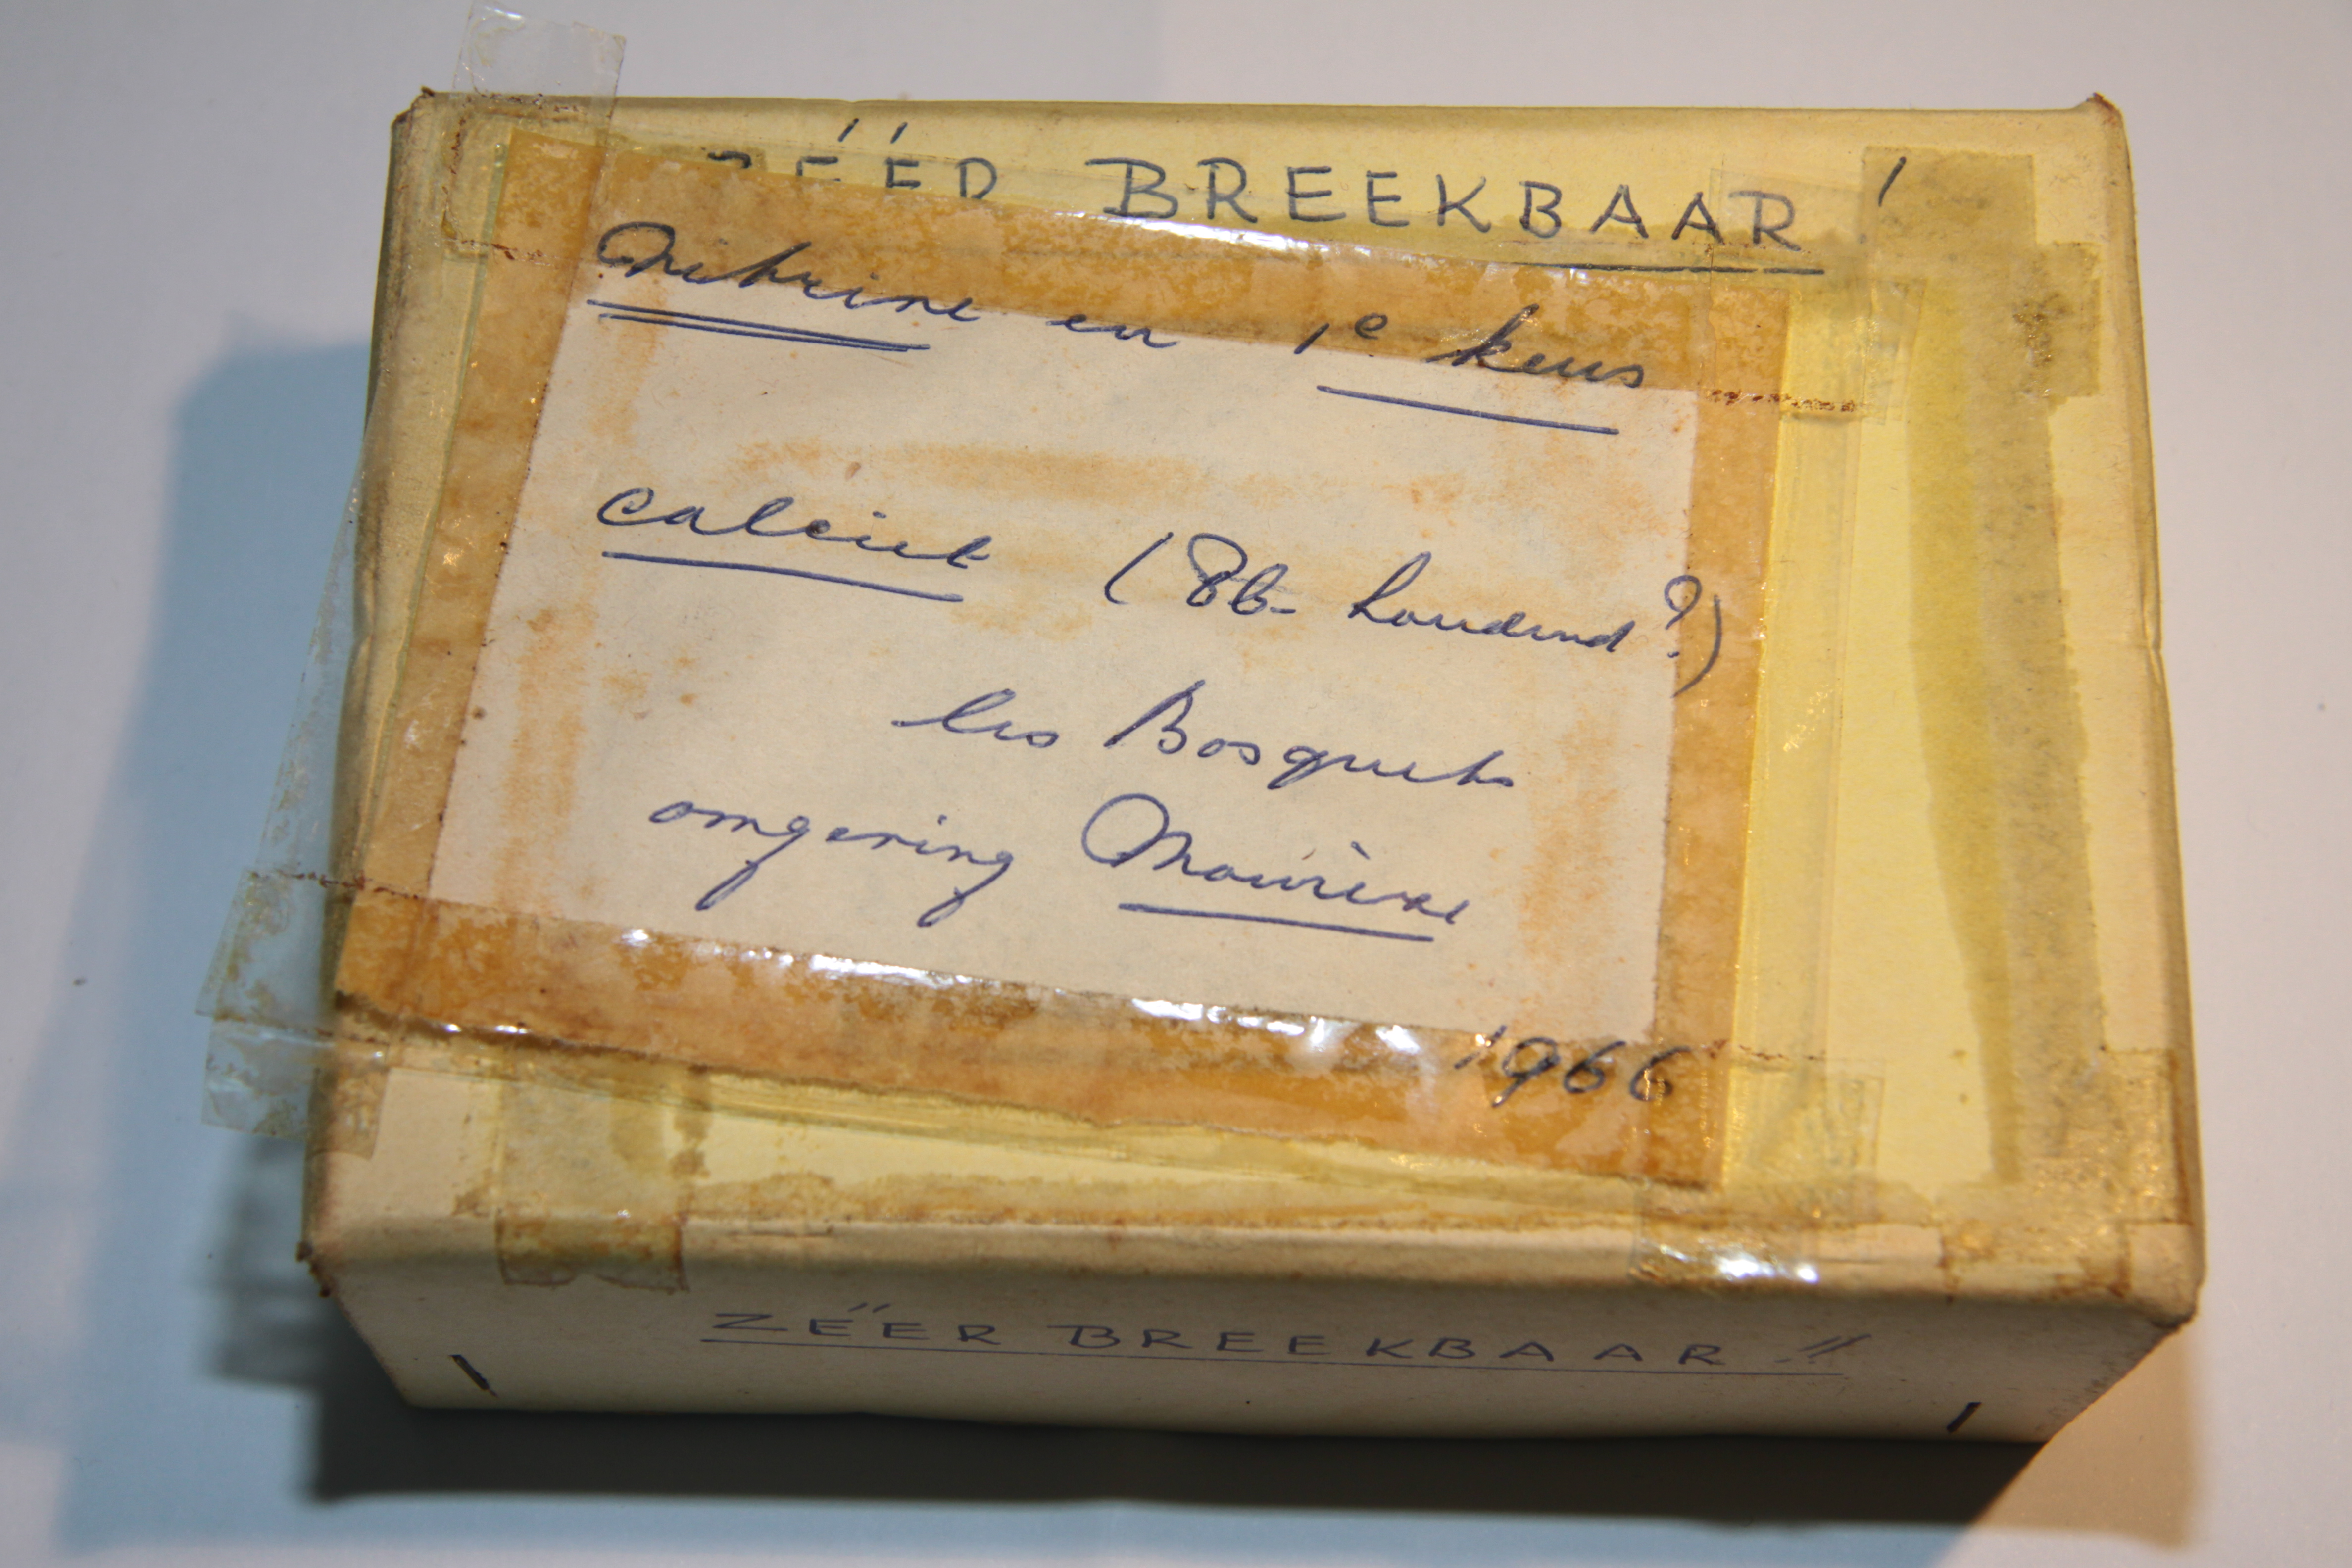 ZÉÉR BREEKBAAR!
Vitrine en 1e keus
calciet (Pb-houdend?)
les Bosquets
omgeving Mourèze
1966
ZÉÉR BREEKBAAR!!